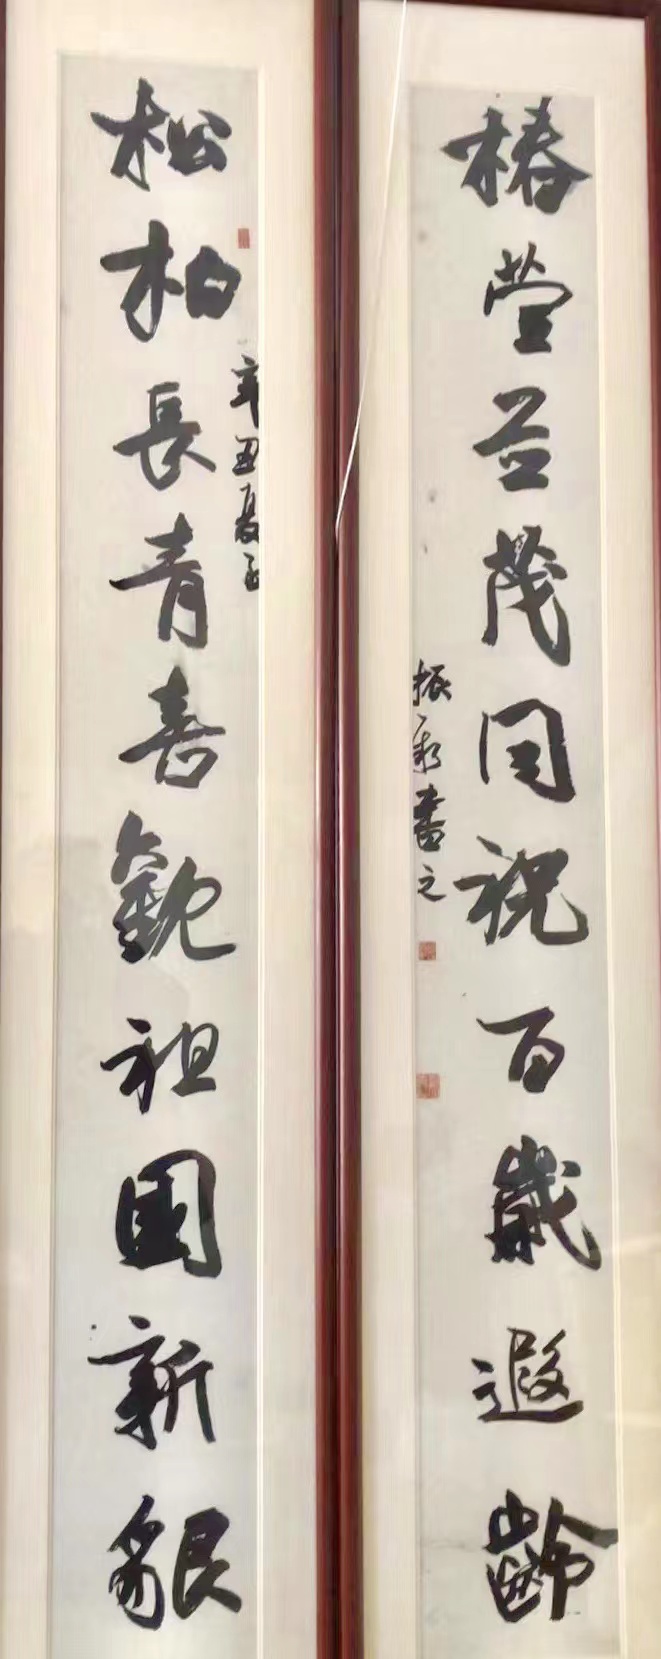 松柏長青喜觀祖國新貌
辛丑夏至
椿萱並茂同祝百歲遐齡
振 書之